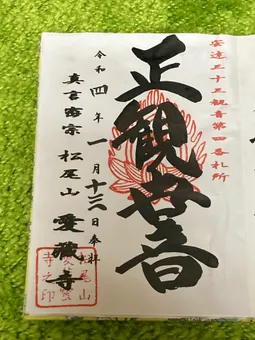 安達三十三観音第四番札所
正観世音
令和四年一月十三日奉拝
真言密宗 松尾山 愛蔵寺
松尾山
愛蔵
寺之印